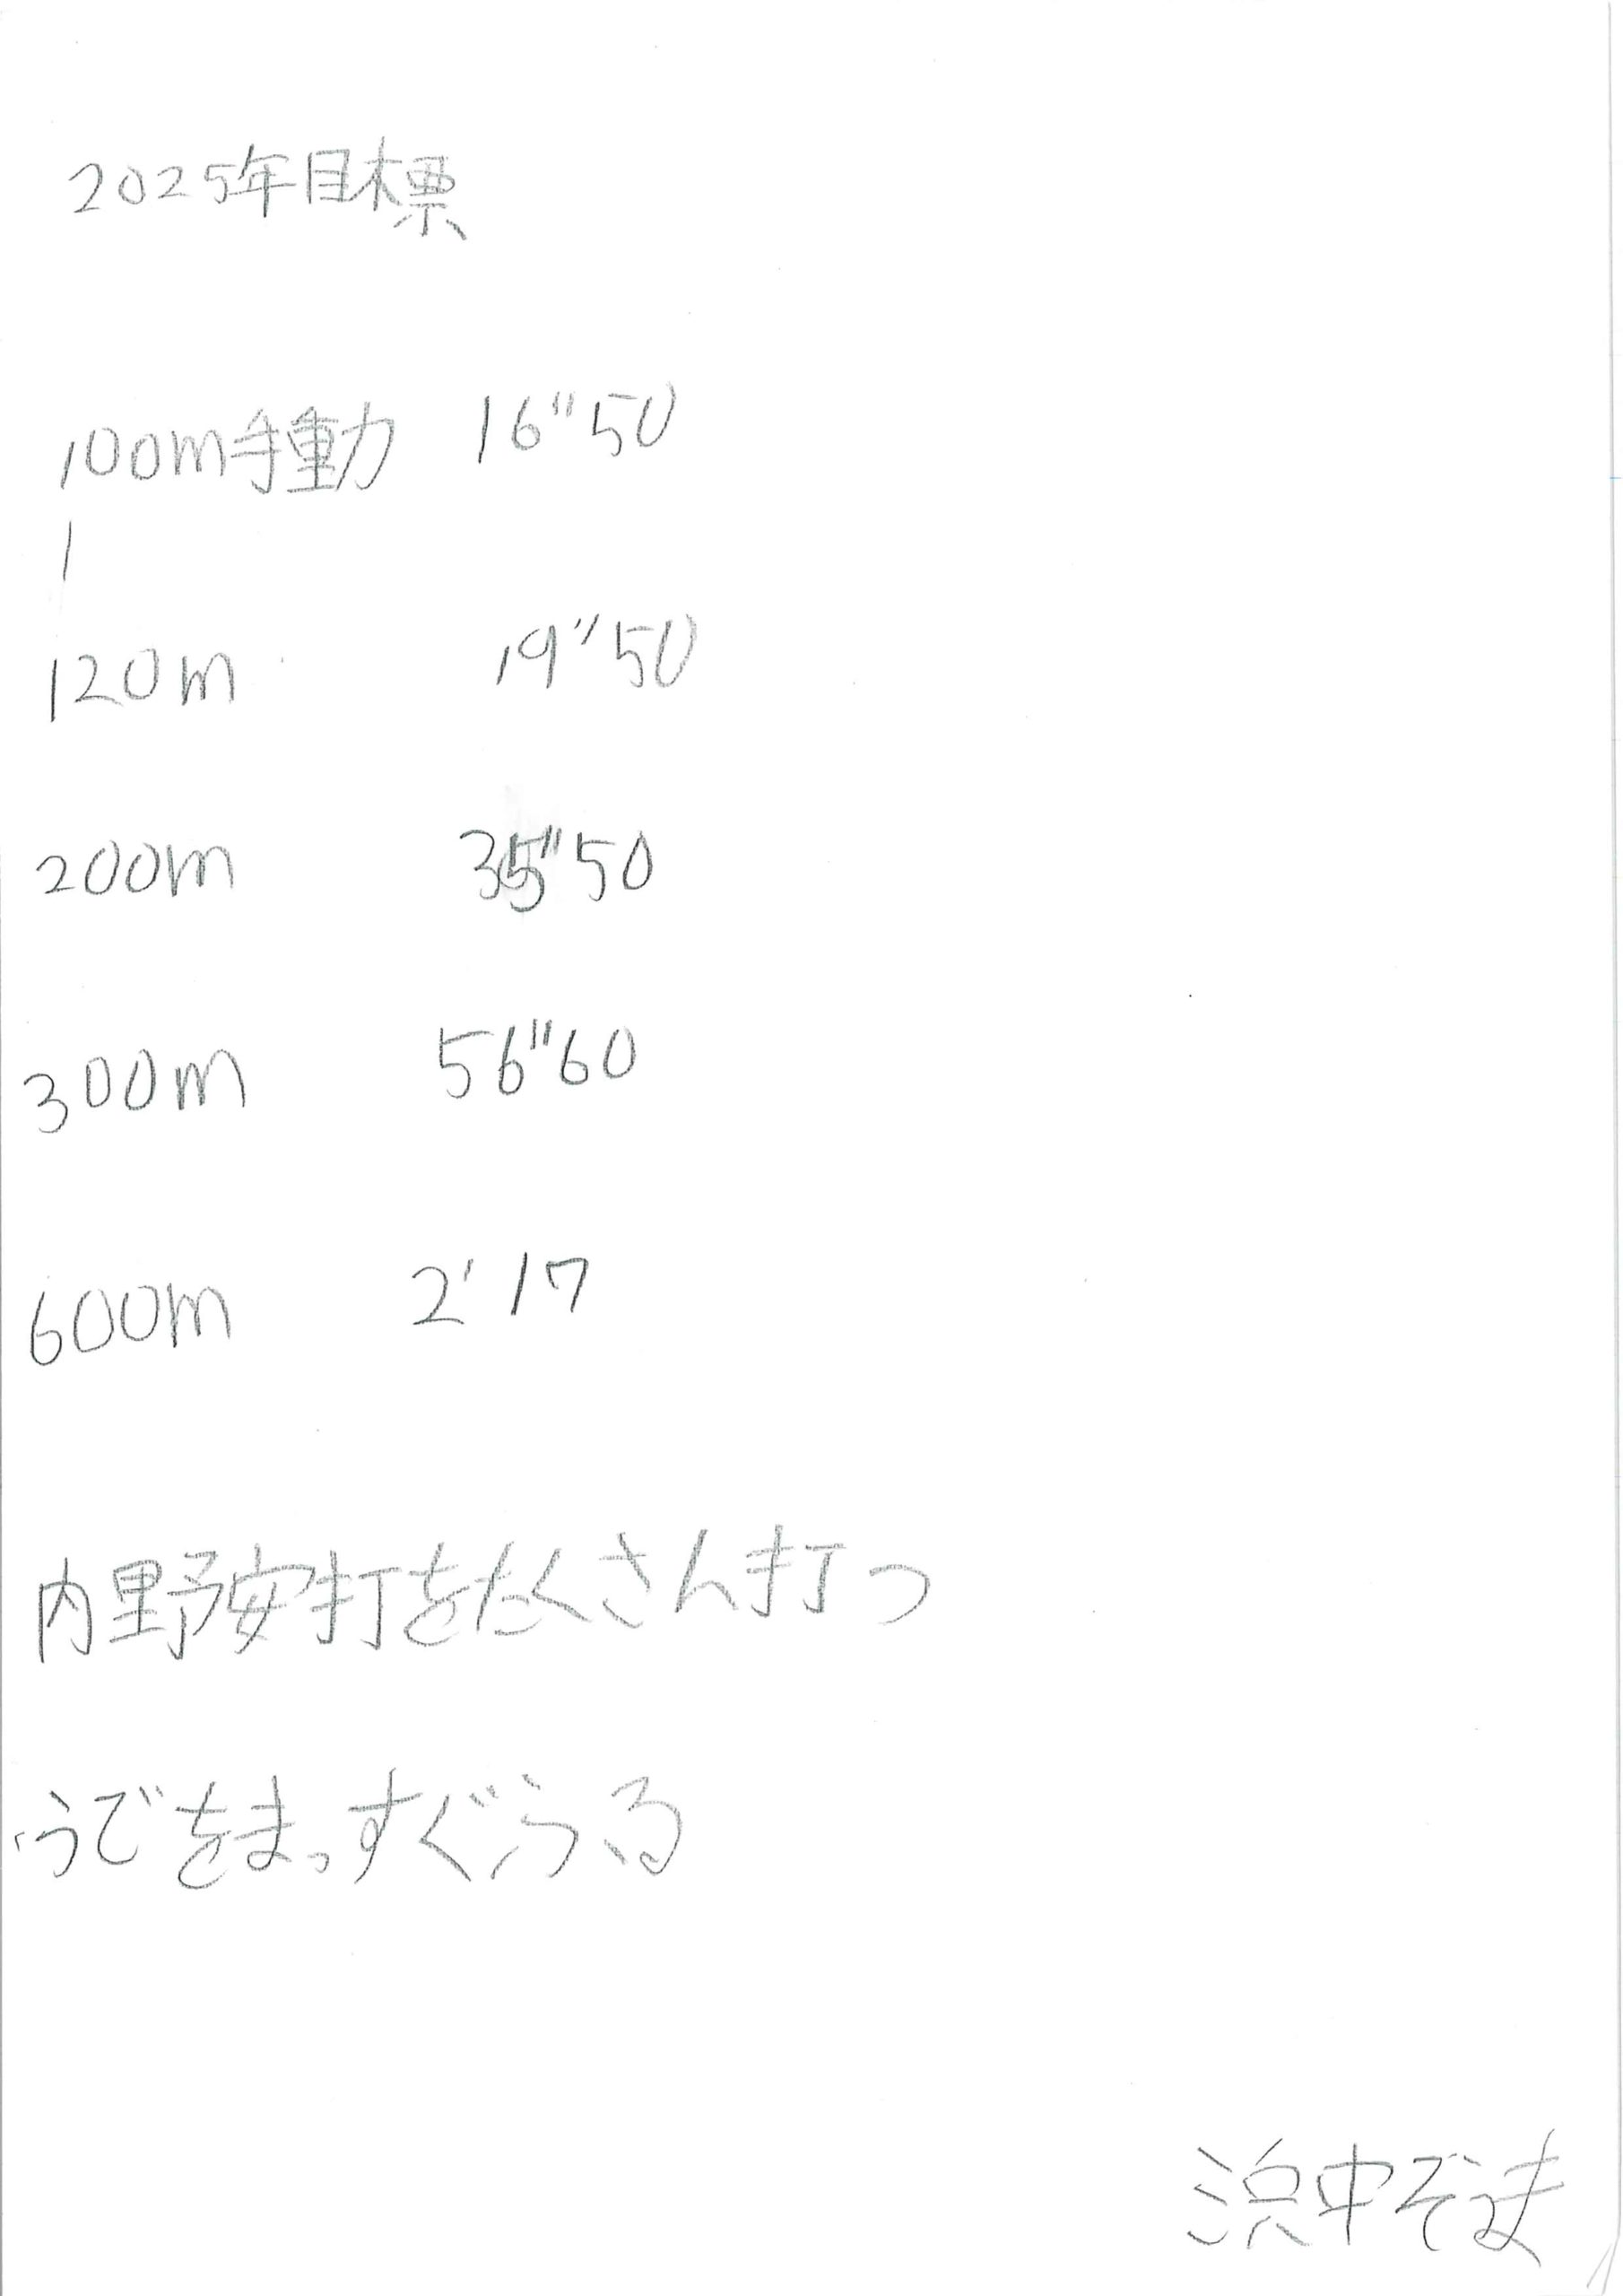 2025年目標
100m手動 16"50
1
120m 19"50
200m 35"50
300m 56"60
600m 2'17
内野安打をたくさん打つ
うでをまっすぐふる
浜中そま